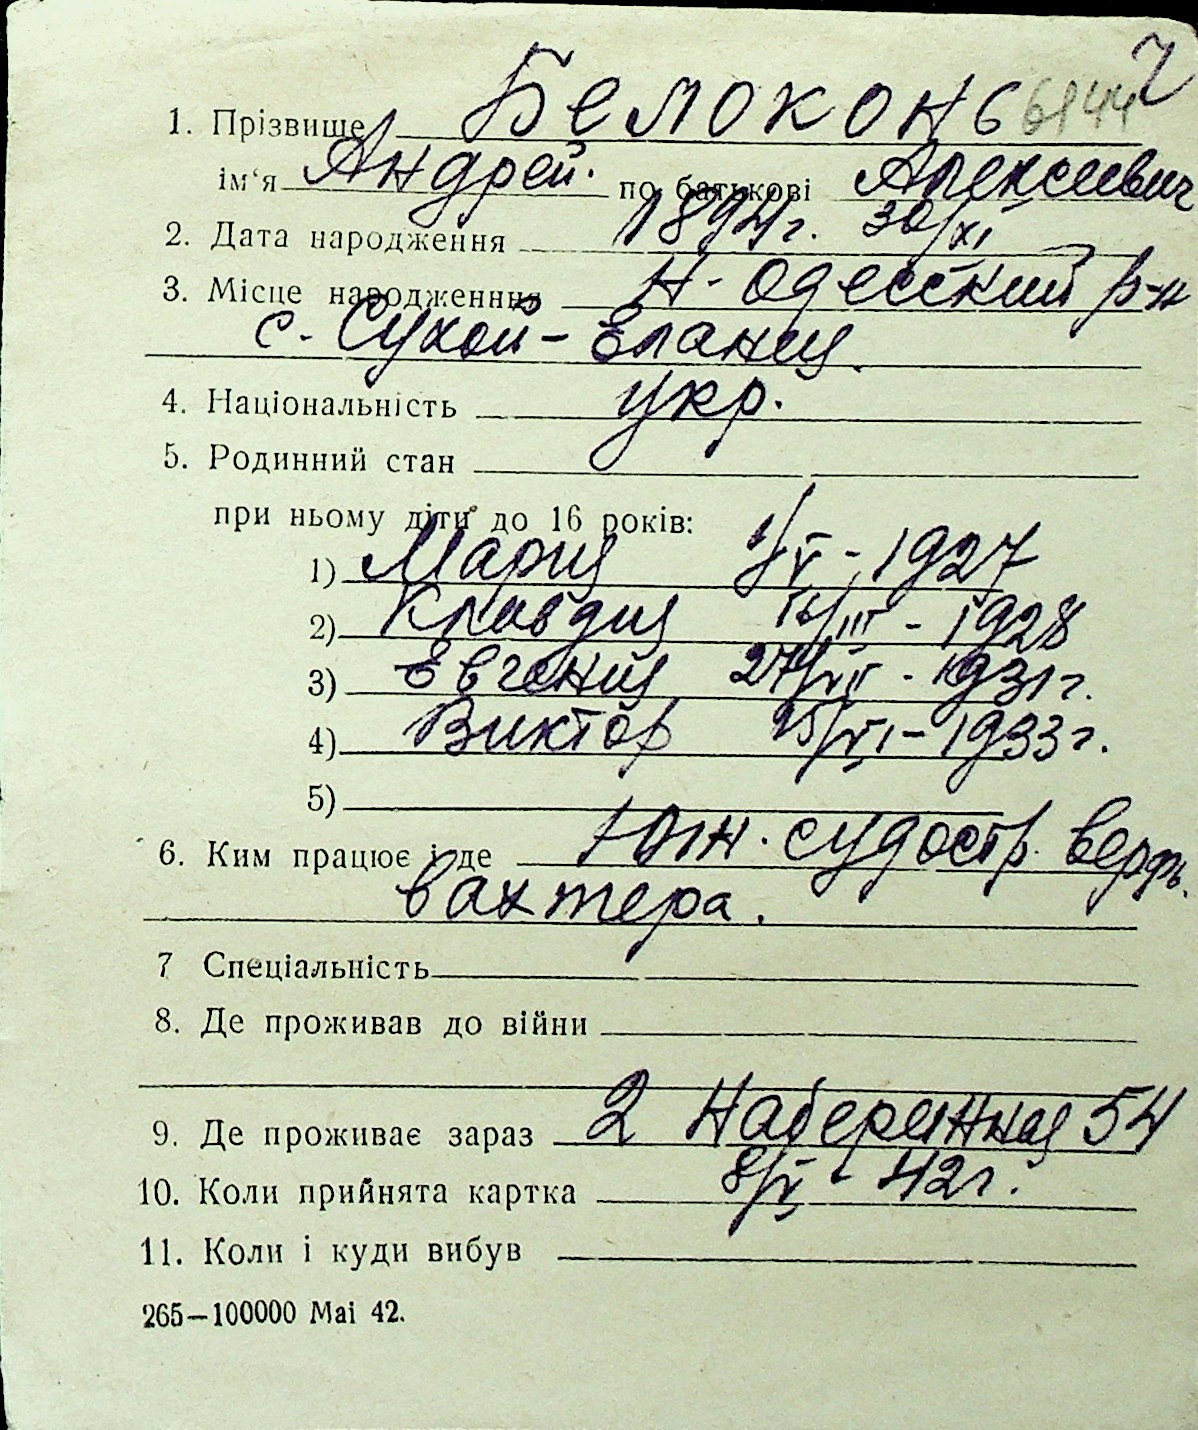 1. Прізвище Белоконь 6144 2
ім'я Андрей. по батькові Алексеевич
2. Дата народження 1894г. 30/XI
3. Місце народженння Н-Одесский р-н
с. Сухой-Еланец.
4. Національність укр.
5. Родинний стан
при ньому діти до 16 років:
1) Мария 1/V - 1927
2) Клавдия 16/III - 1928
3) Евгений 27/VII - 1931г.
4) Виктор 25/VI - 1933г.
5)
6. Ким працює і де Южн. судостр. верфь.
вахтера.
7 Спеціальність
8. Де проживав до війни
9. Де проживає зараз 2 Набережная 54
10. Коли прийнята картка 8/V - 42г.
11. Коли і куди вибув
265—100000 Mai 42.